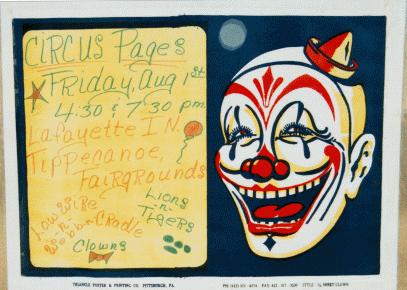 CIRCUS Pages
Friday, Aug 1st
4:30 & 7:30 pm
Lafayette IN.
Tippenanoe,
Fairgrounds
Lions
-n-
Tigers
Clowns
TRIANGLE POSTER & PRINTING CO. PITTSBURGH, PA.